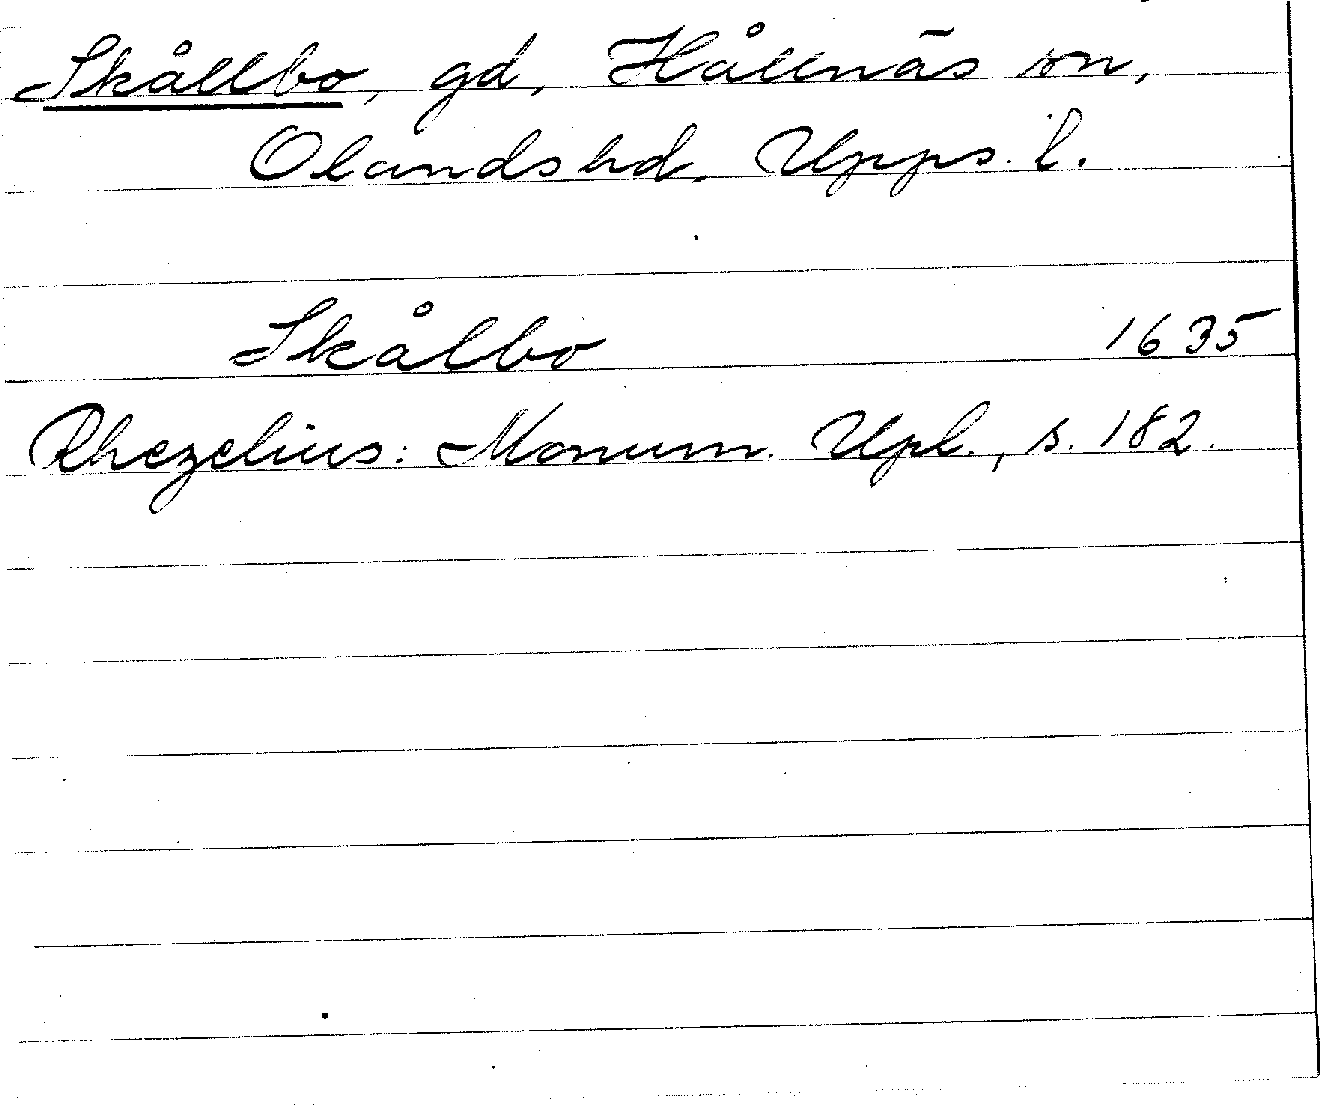 Skållbo, gd, Hållnäs sn,
Olandshd. Upps. l.
Skålbo 1635
Rhezelius: Monum. Upl., s. 182.